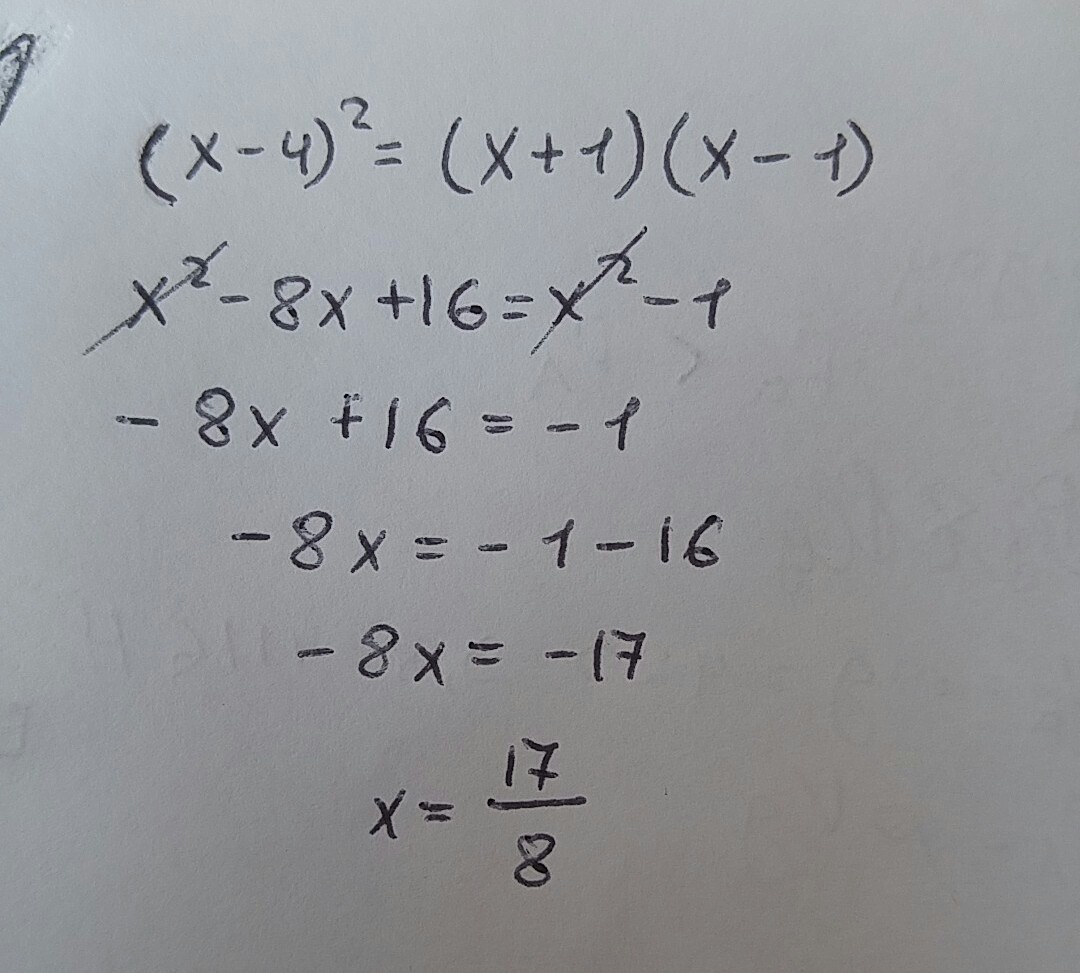 (x-4)²=(x+1)(x-1)
x²-8x+16=x²-1
-8x+16=-1
-8x=-1-16
-8x=-17
x=17/8